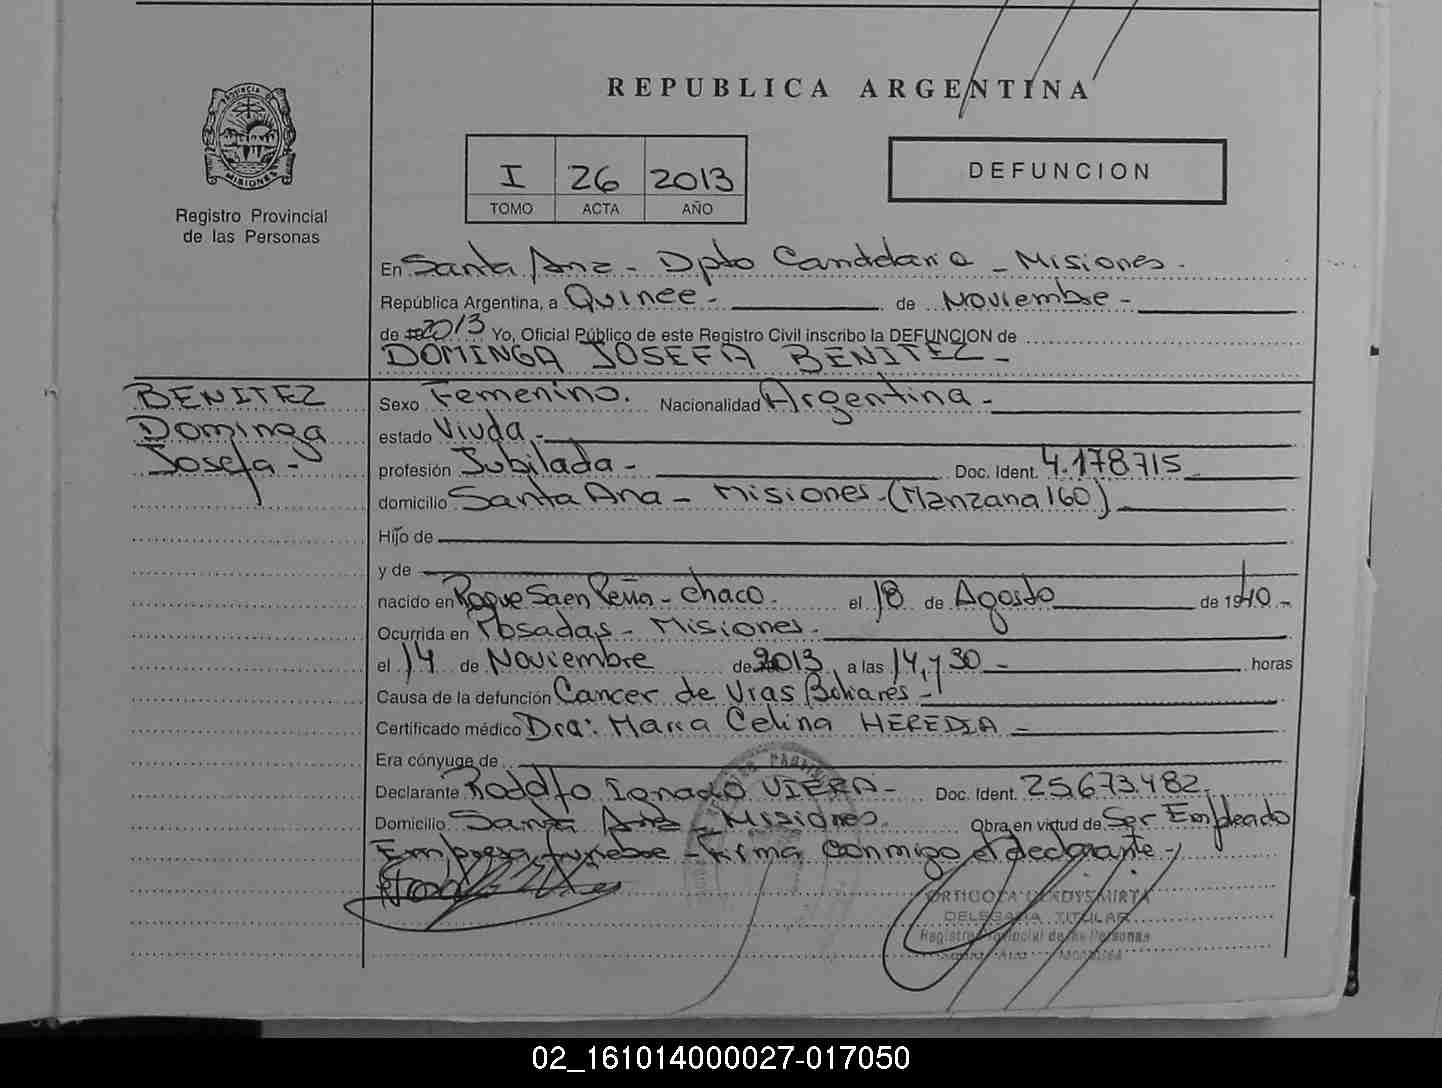 REPUBLICA ARGENTINA
PROVINCIA DE
MISIONES
Registro Provincial
de las Personas
I 26 2013
TOMO ACTA AÑO
DEFUNCION
En Santa Ana - Dpto Candelaria - Misiones -
República Argentina, a Quince - de Noviembre -
de 2013 Yo, Oficial Público de este Registro Civil inscribo la DEFUNCION de
DOMINGA JOSEFA BENITEZ -
BENITEZ
Dominga
Josefa -
Sexo Femenino. Nacionalidad Argentina -
estado Viuda -
profesión Jubilada - Doc. Ident. 4.178715
domicilio Santa Ana - Misiones - (Manzana 160)
Hijo de
y de
nacido en Roque Saen Peña - Chaco. el 18 de Agosto de 1940 -
Ocurrida en Posadas - Misiones -
el 14 de Noviembre de 2013 a las 14, y 30 - horas
Causa de la defunción Cancer de Vias Biliares -
Certificado médico Dra: Maria Celina HEREDIA -
Era cónyuge de
Declarante Rodolfo Ignacio VIERA - Doc. Ident. 25.673.482
Domicilio Santa Ana - Misiones. Obra en virtud de Ser Empleado
Empresa funebre - Firma conmigo el declarante -
ORTIGOZA GLADYS MIRTA
DELEGADA TITULAR
Registro Provincial de las Personas
Santa Ana Misiones
02_161014000027-017050